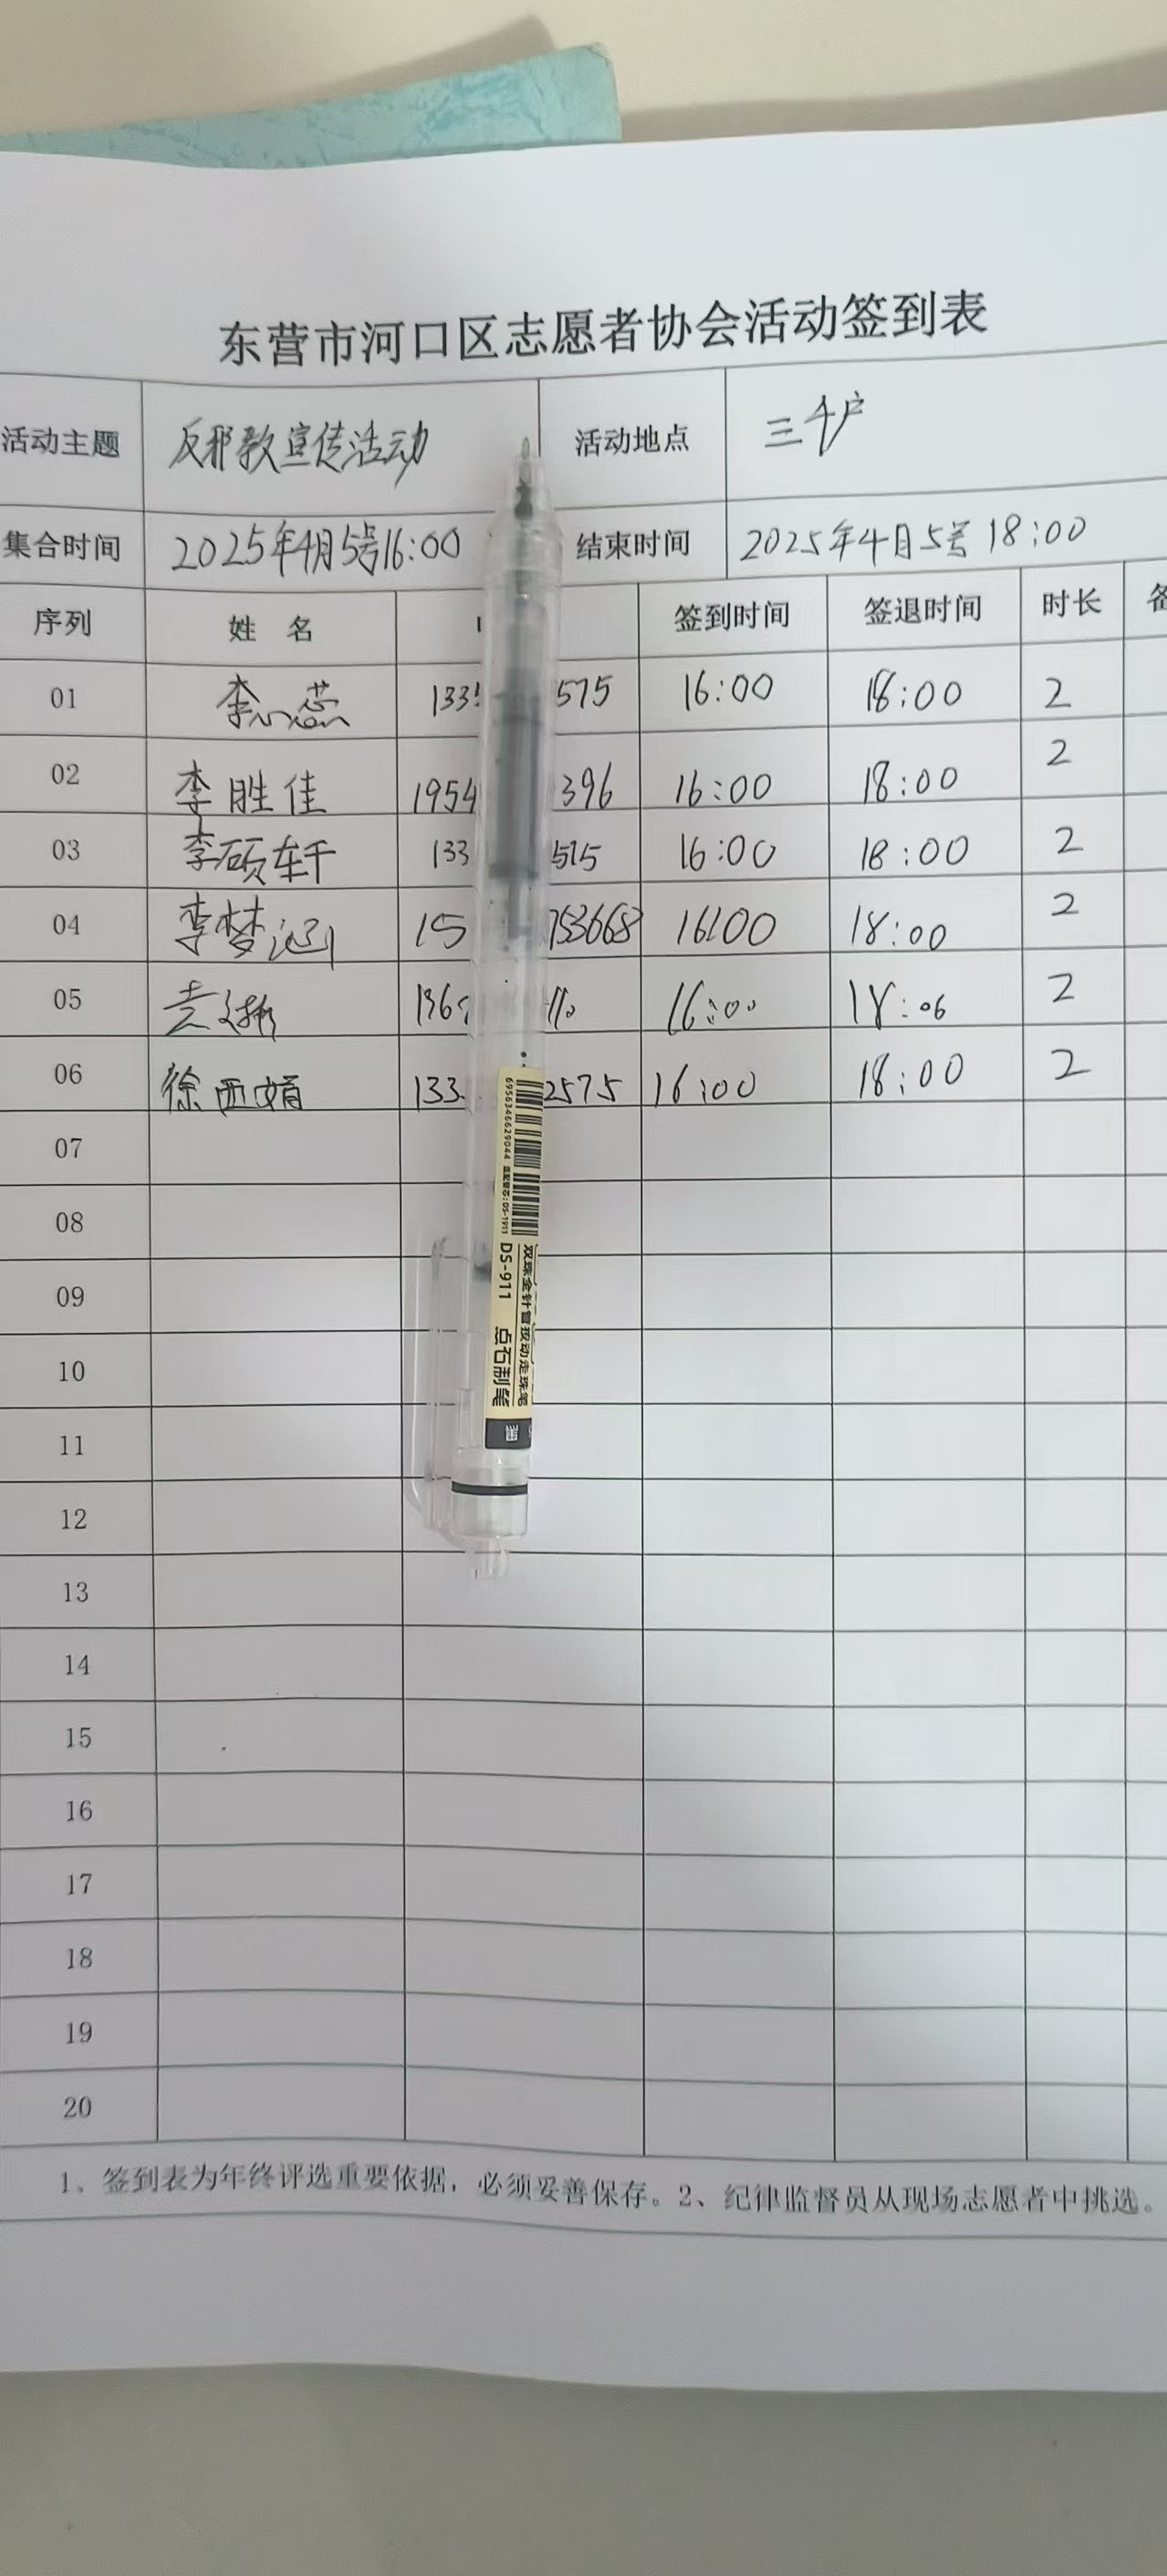 东营市河口区志愿者协会活动签到表
活动主题 反邪教宣传活动 活动地点 三千户
集合时间 2025年4月5号16:00 结束时间 2025年4月5号 18:00
序列 姓 名 签到时间 签退时间 时长
01 李心蕊 133 575 16:00 18:00 2
02 李胜佳 1954 396 16:00 18:00 2
03 李硕轩 133 515 16:00 18:00 2
04 李梦涵 15 753668 16:00 18:00 2
05 136 16:00 18:06 2
06 徐 133 2575 16:00 18:00 2
07
08
09
10
11
12
13
14
15
16
17
18
19
20
1、签到表为年终评选重要依据，必须妥善保存。2、纪律监督员从现场志愿者中挑选。
6956346629044
双珠全针管按动走珠笔
DS-911 点石制笔